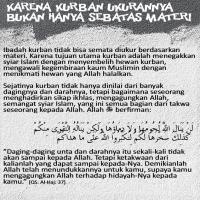 KARENA KURBAN UKURANNYA
BUKAN HANYA SEBATAS MATERI
Ibadah kurban tidak bisa semata diukur berdasarkan
materi. Karena tujuan utama kurban adalah menegakkan
syiar Islam dengan menyembelih hewan kurban,
mengawali kegembiraan kaum Muslimin dengan
menikmati hewan yang Allah halalkan.
Sejatinya kurban tidak hanya dinilai dari banyak
dagingnya dan darahnya, tetapi bagaimana seseorang
menghadirkan sikap ikhlas, mengagungkan Allah,
semangat syiar Islam, yang ini semua bagian dari takwa
seseorang kepada Allah. Allah ﷻ berfirman:
لَن يَنَالَ اللَّهَ لُحُومُهَا وَلَا دِمَاؤُهَا وَلَٰكِن يَنَالُهُ التَّقْوَىٰ مِنكُمْ
كَذَٰلِكَ سَخَّرَهَا لَكُمْ لِتُكَبِّرُوا اللَّهَ عَلَىٰ مَا هَدَاكُمْ
"Daging-daging unta dan darahnya itu sekali-kali tidak
akan sampai kepada Allah. Tetapi ketakwaan dari
kalianlah yang dapat sampai kepada-Nya. Demikianlah
Allah telah menundukkannya untuk kamu, supaya kamu
mengagungkan Allah terhadap hidayah-Nya kepada
kamu." (QS. Al-Haj: 37).